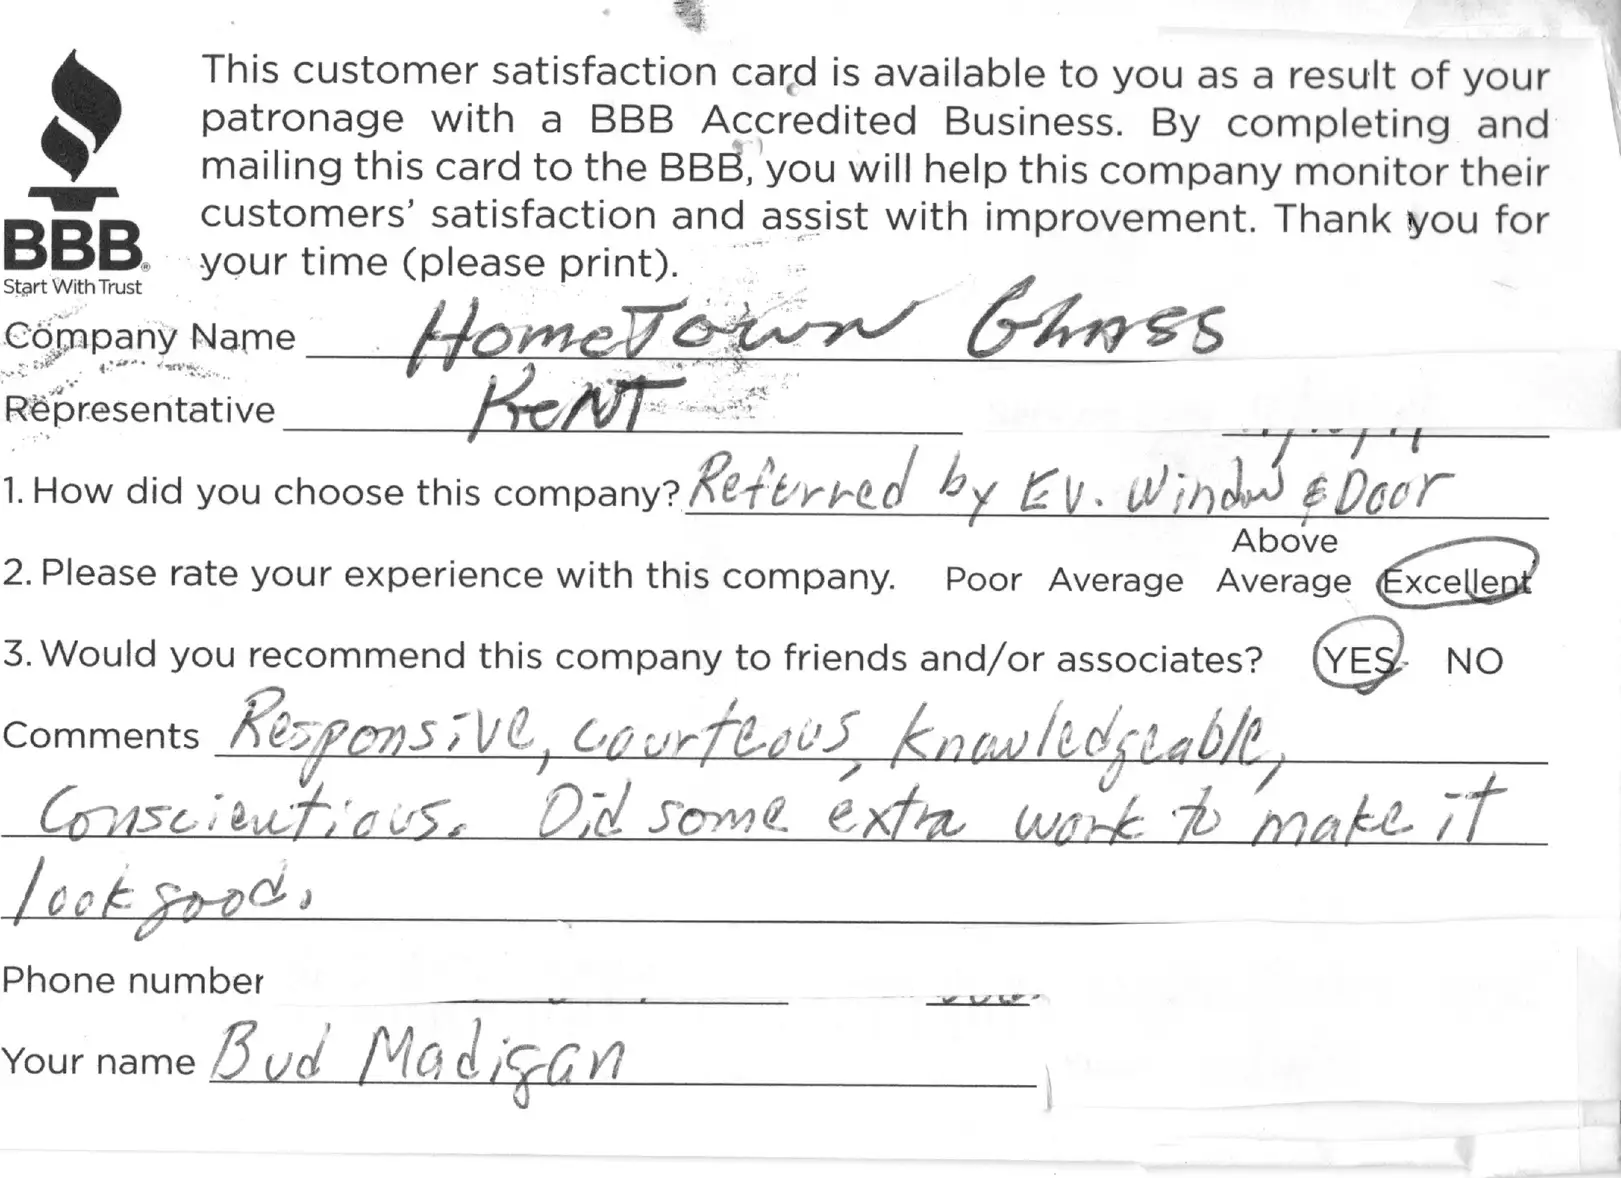 This customer satisfaction card is available to you as a result of your
patronage with a BBB Accredited Business. By completing and
mailing this card to the BBB, you will help this company monitor their
customers' satisfaction and assist with improvement. Thank you for
your time (please print).
BBB®
Start With Trust
Company Name HomeTown Glass
Representative KeNT
1. How did you choose this company? Referred by EV. Window & Door
2. Please rate your experience with this company. Poor Average Above Average Excellent
3. Would you recommend this company to friends and/or associates? YES NO
Comments Responsive, courteous, knowledgeable,
Conscientious. Did some extra work to make it
look good.
Phone number
Your name Bud Madigan